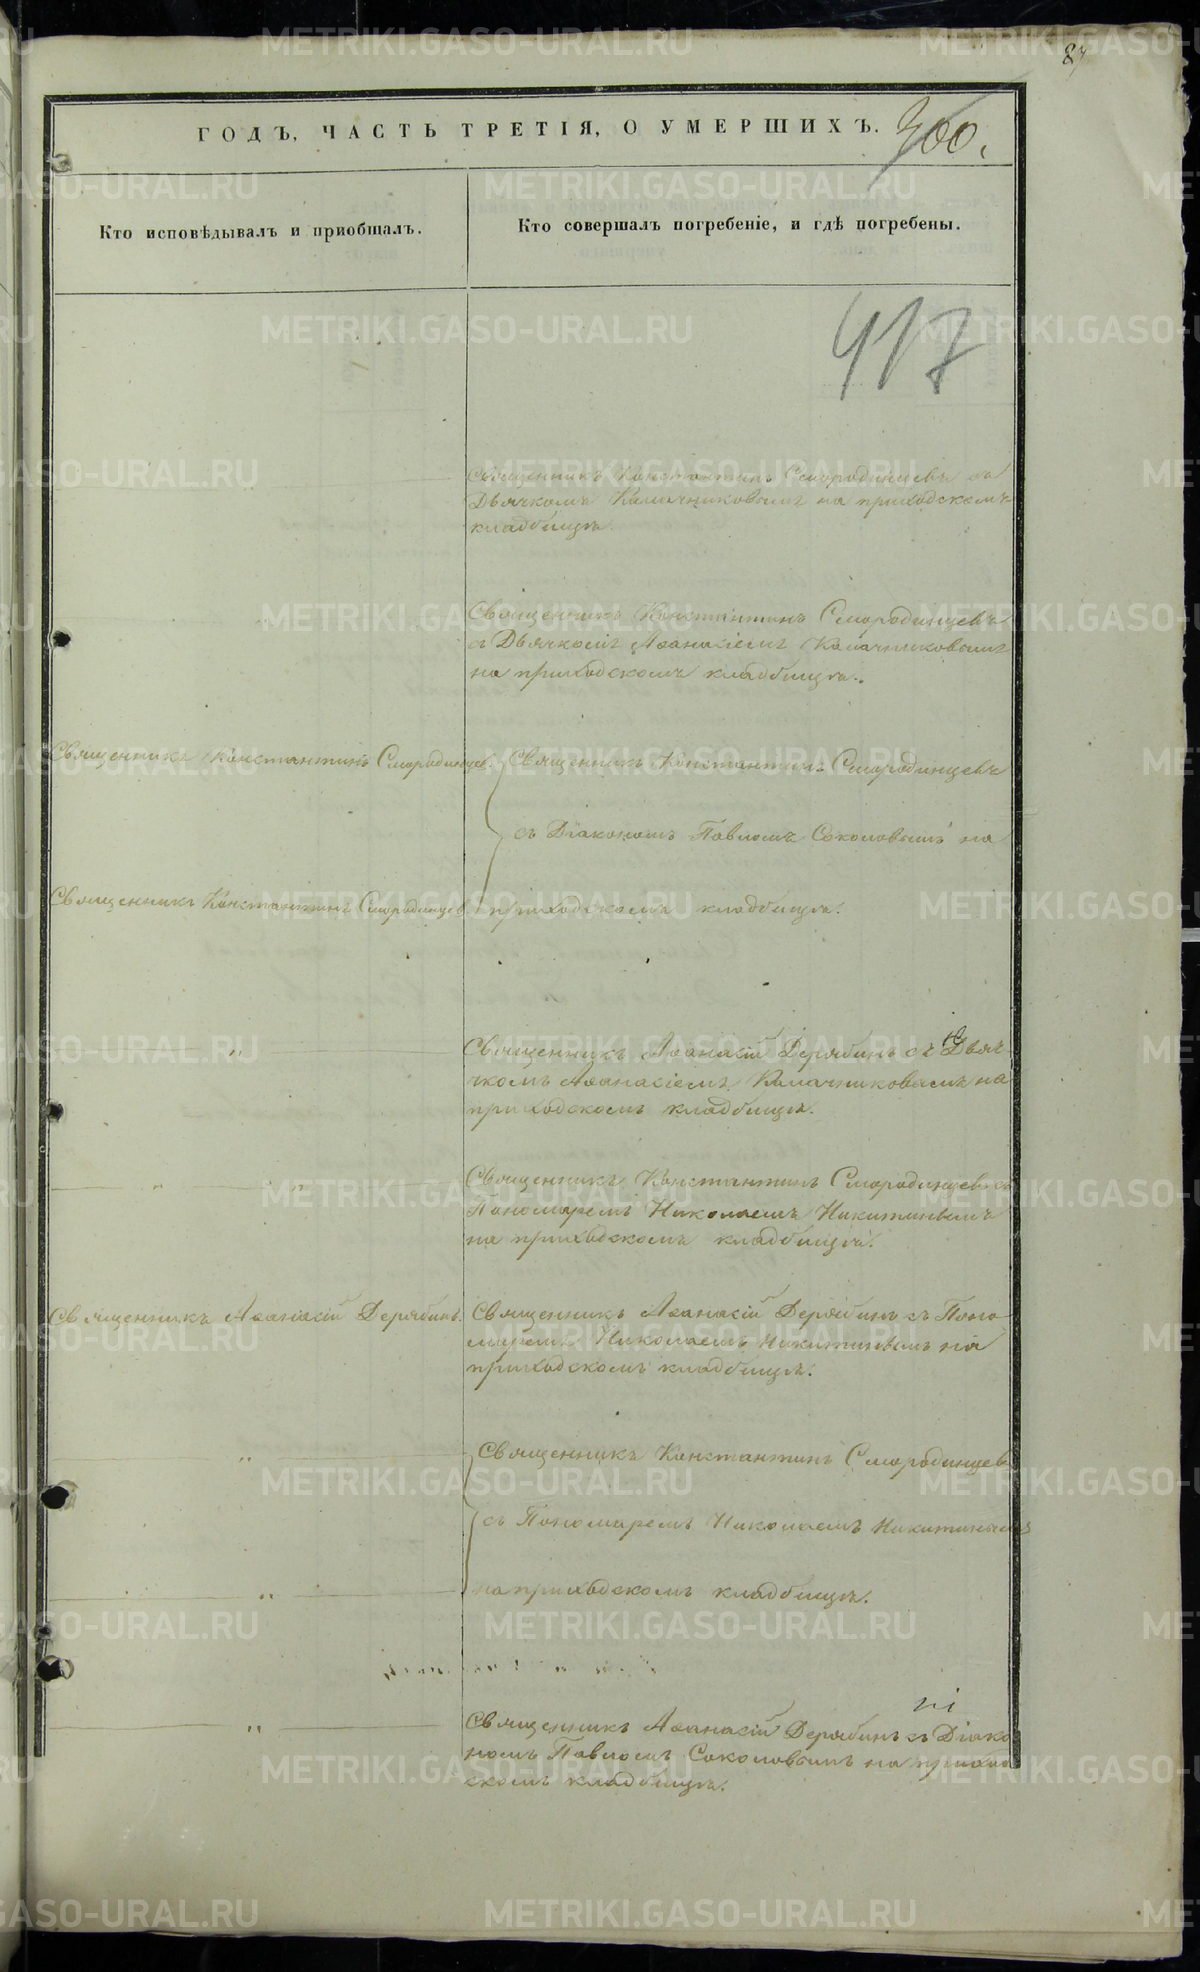 87
ГОДЪ, ЧАСТЬ ТРЕТІЯ, О УМЕРШИХЪ.
300.
Кто исповѣдывалъ и пріобщалъ.
Кто совершалъ погребеніе, и гдѣ погребены.
417
Священникъ Константинъ Смородинцевъ съ
Дьячкомъ Калачниковымъ на приходскомъ
кладбищѣ.
Священникъ Константинъ Смородинцевъ
съ Дьячкомъ Аѳанасіемъ Калачниковымъ
на приходскомъ кладбищѣ.
Священникъ Константинъ Смородинцев.
Священникъ Константинъ Смородинцевъ
съ Діакономъ Павломъ Соколовымъ на
Священникъ Константинъ Смородинцев.
приходскомъ кладбищѣ.
Священникъ Аѳанасій Дерябинъ съ Дьяч-
комъ Аѳанасіемъ Калачниковымъ на
приходскомъ кладбищѣ.
Священникъ Константинъ Смородинцевъ съ
Пономаремъ Николаемъ Никитинымъ
на приходскомъ кладбищѣ.
Священникъ Аѳанасій Дерябинъ.
Священникъ Аѳанасій Дерябинъ съ Поно-
маремъ Николаемъ Никитинымъ на
приходскомъ кладбищѣ.
Священникъ Константинъ Смородинцевъ
съ Пономаремъ Николаемъ Никитинымъ
на приходскомъ кладбищѣ.
Священникъ Аѳанасій Дерябинъ съ Діако-
номъ Павломъ Соколовымъ на приход-
скомъ кладбищѣ.
METRIKI.GASO-URAL.RU